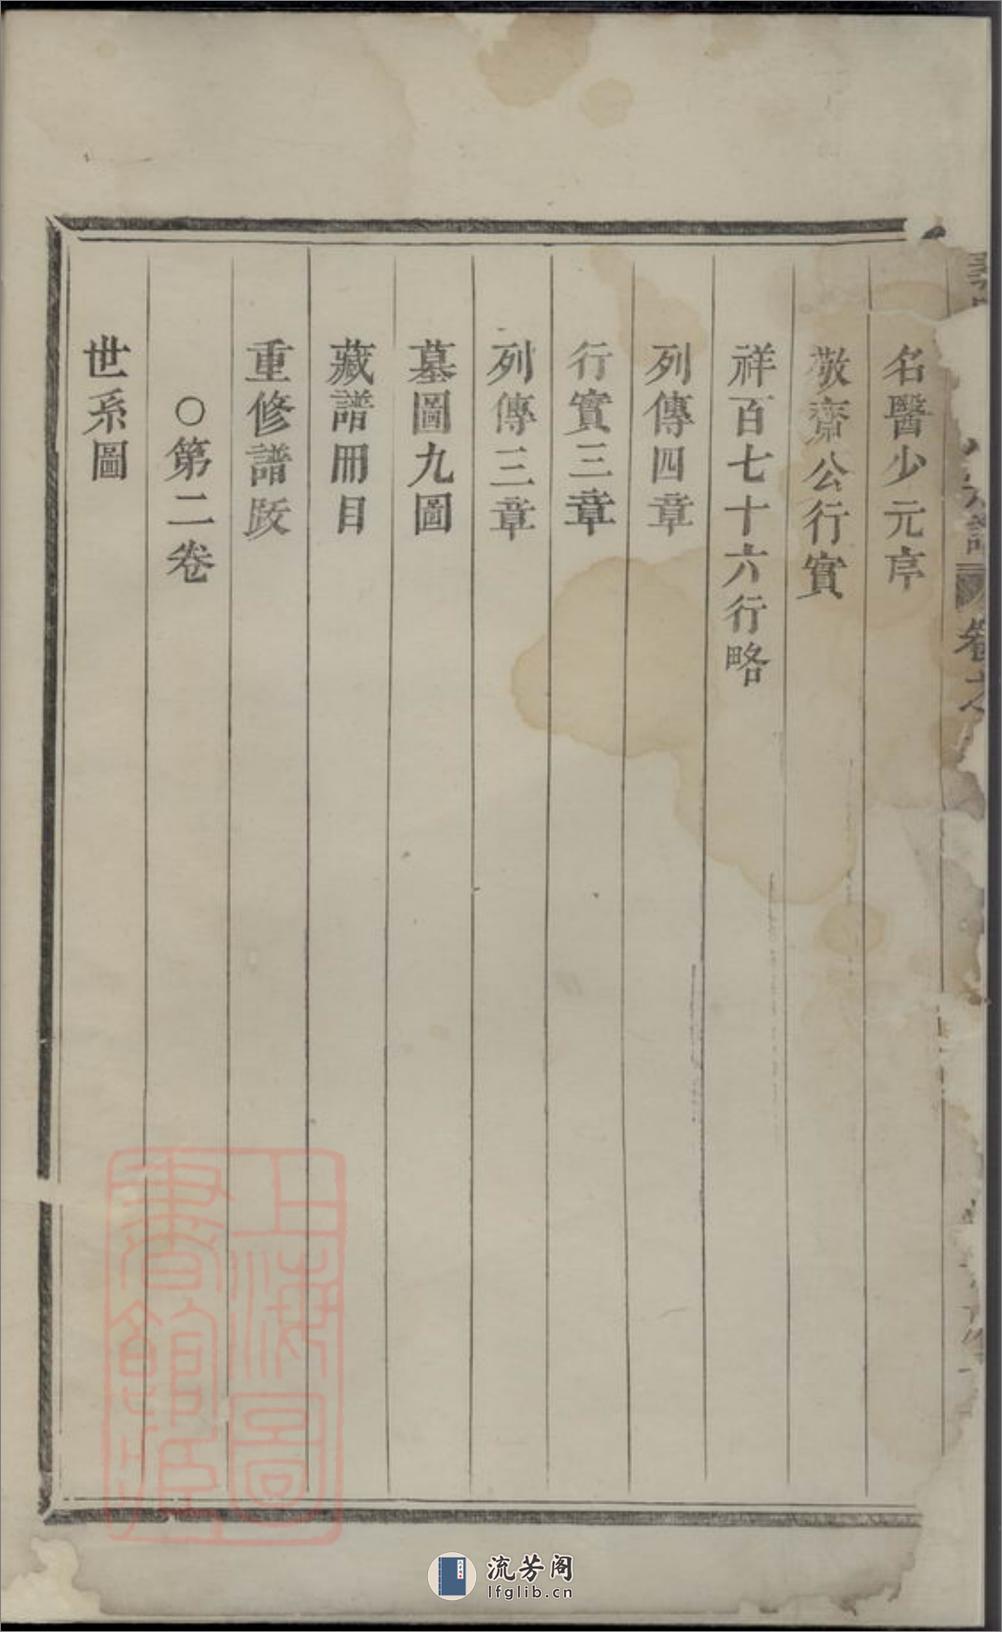 名醫少元序
敬齋公行實
祥百七十六行略
列傳四章
行實三章
列傳三章
墓圖九圖
藏譜冊目
重修譜跋
○第二卷
世系圖
卷之
上海圖
書館藏
流芳阁
lfglib.cn